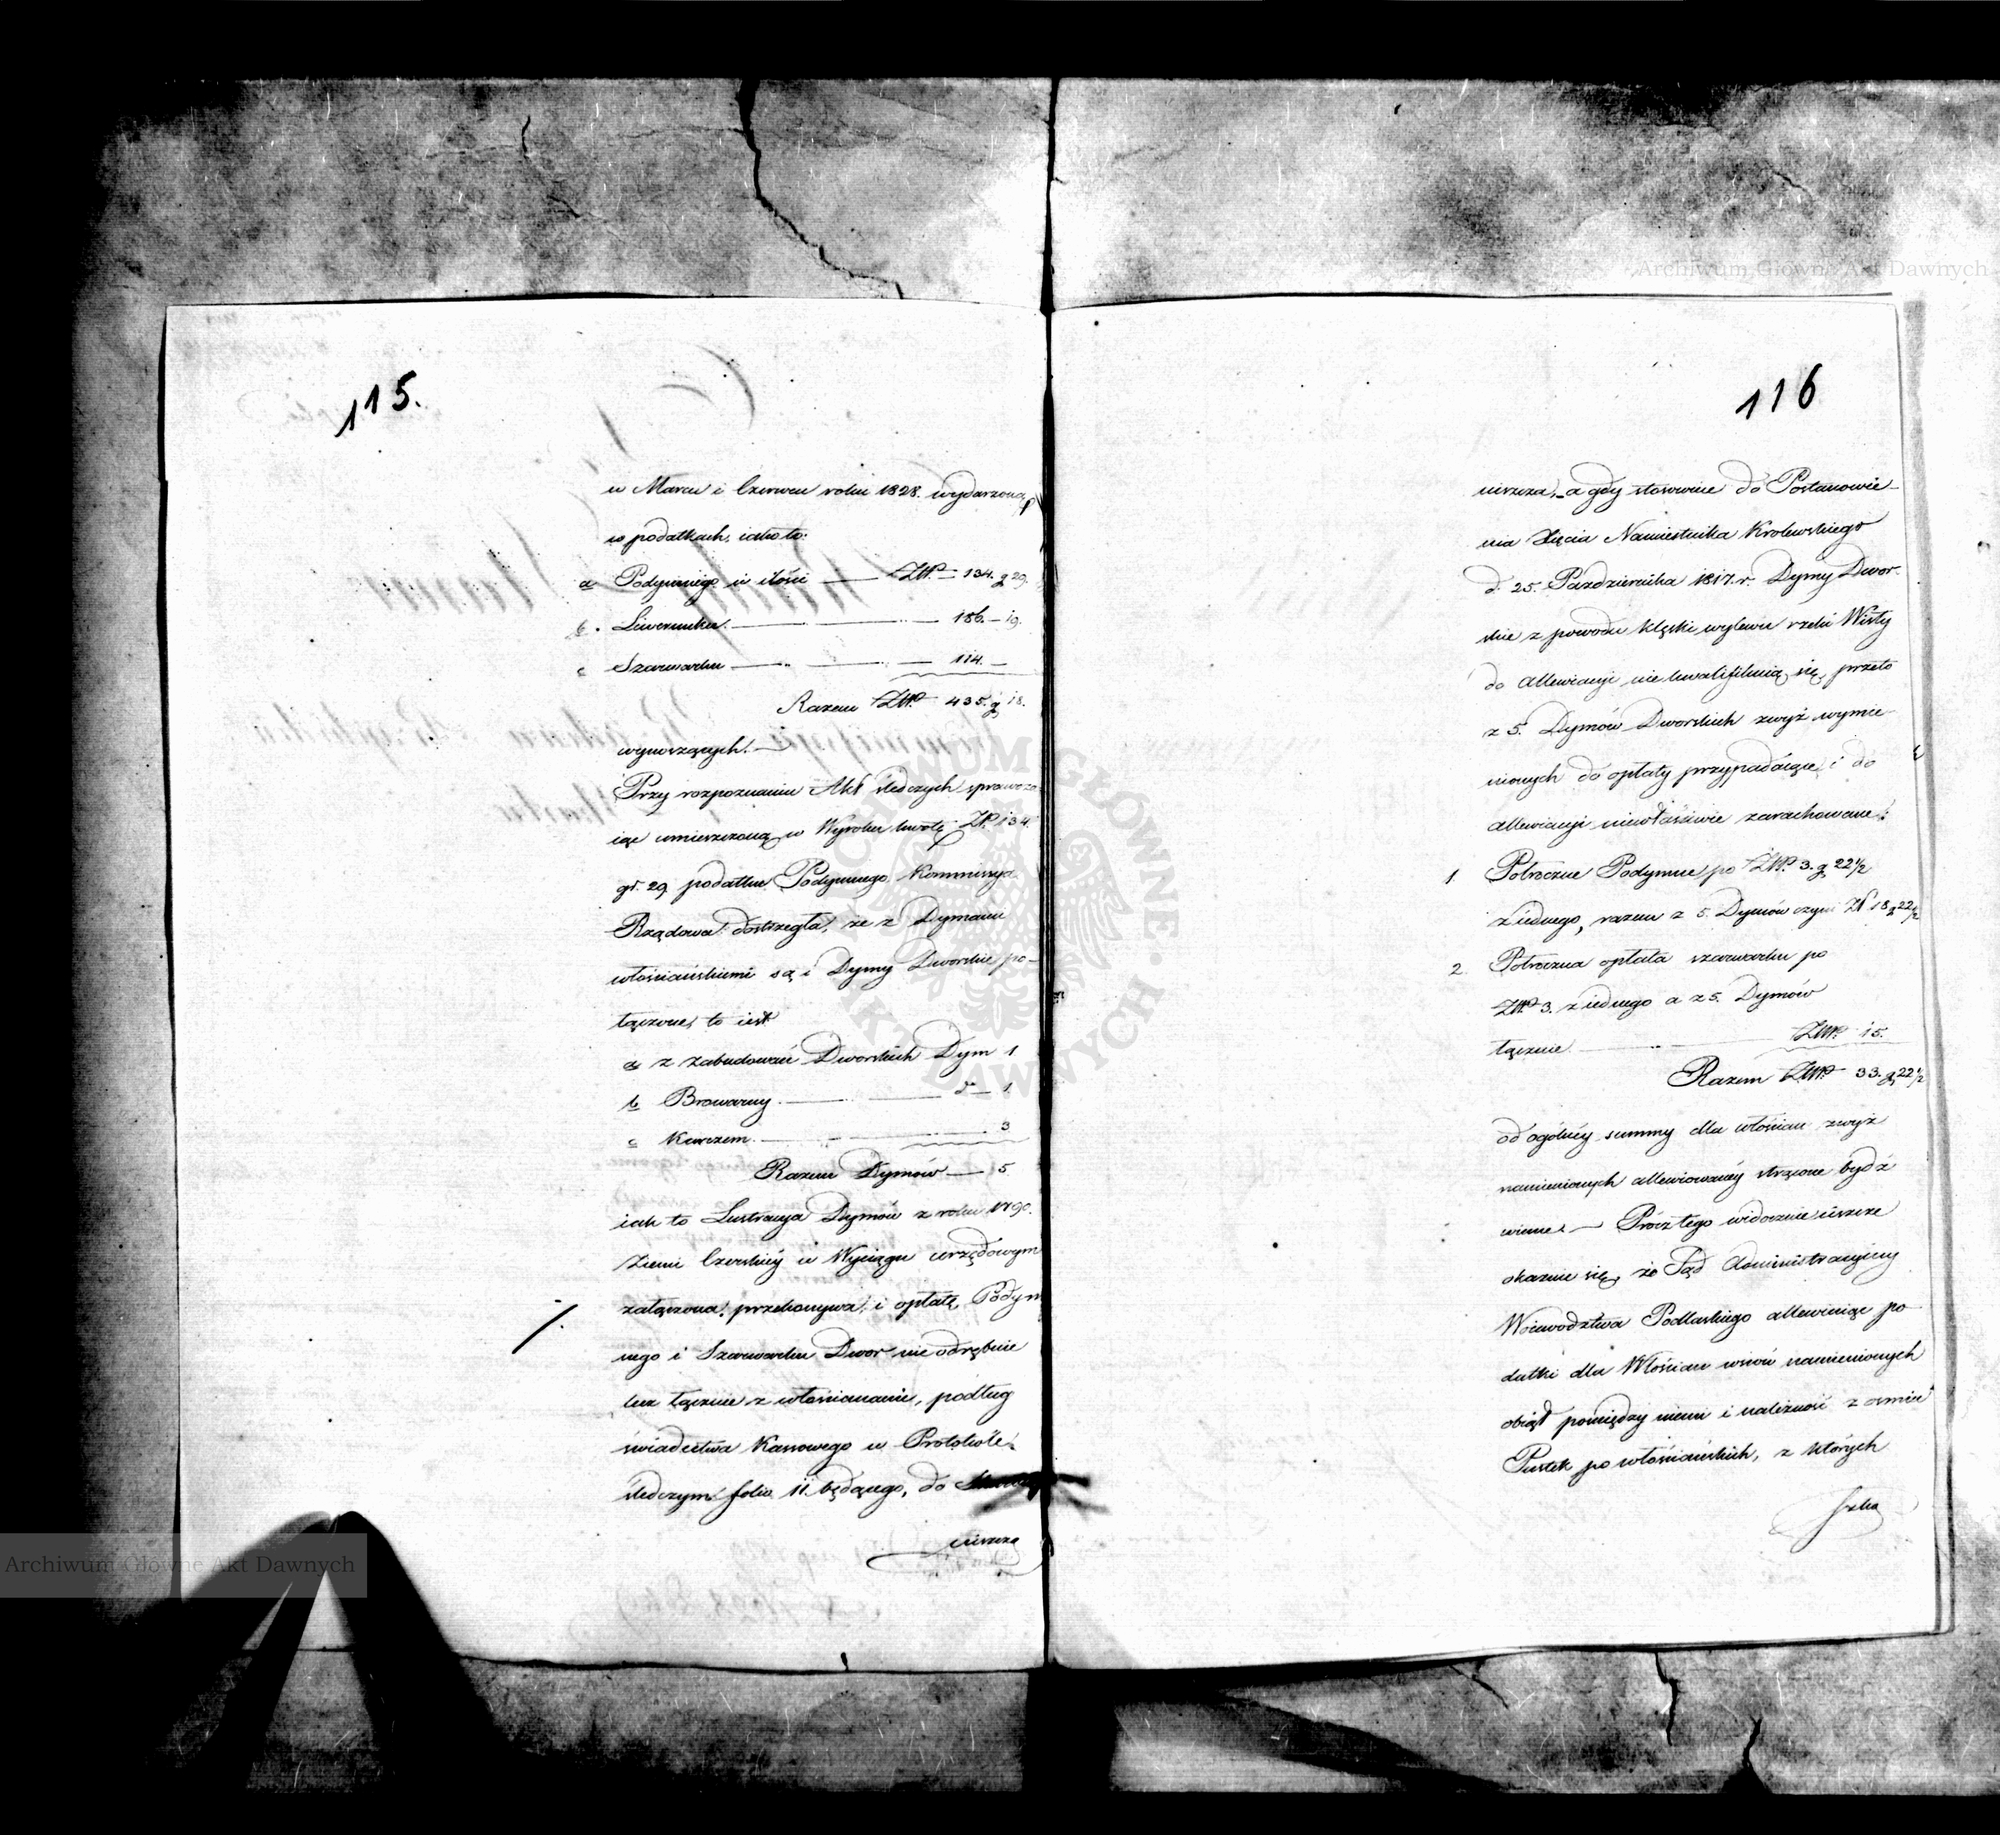 115.
w Marcu i Czerwcu roku 1828. wydarzoną
w podatkach, iako to:
a Podymnego w ilości — ZłP. — 134. g 29.
b. Liwerunku. — 186. — 19.
c Szarwarku — 114. —
Razem ZłP. 435. g 18.
wynoszących. —
Przy rozpoznaniu Akt śledczych sprawdza
iąc umieszczoną w Wyroku kwotę ZłP. 134.
gr. 29. podatku Podymnego, Kommissya
Rządowa dostrzegła, że z Dymami
włościańskiemi są i Dymy Dworskie po-
łączone, to iest
a z zabudowań Dworskich Dym 1
b Browarny. — d° — 1.
c Karczem. — 3
Razem Dymów — 5
iak to Lustracya Dymów z roku 1790.
Ziemi Czerskiey w Wyciągu urzędowym
załączona, przekonywa, i opłatę Podym
nego i Szarwarku Dwor nie odrębnie
lecz łącznie z włościanami, podług
świadectwa Kassowego w Protokóle
śledczym folio 11. będącego, do
uiszcza
116
uiszcza, a gdy stosownie do Postanowie-
nia Xięcia Namiestnika Krolewskiego
d. 25. Pazdziernika 1817. r. Dymy Dwor-
skie z powodu klęski wylewu rzeki Wisły
do allewiacyi nie kwalifikuią się, przeto
z 5. Dymów Dworskich zwyż wymie-
nionych do opłaty przypadaiące, i do
allewiacyi niewłaściwie zarachowane:
1. Półroczne Podymne po ZłP. 3. g 22½
z iednego, razem z 5. Dymów czyni Zł 18 g 22½
2. Półroczna opłata szarwarku po
ZłP. 3. z iednego a z 5. Dymów
łącznie — ZłP. 15.
Razem ZłP. 33. g 22½
od ogólnéy summy dla włościan zwyż
namienionych allewiowanéy strącone bydź
winne. — Prócz tego widocznie ieszcze
okazuie się, że Sąd Administracyiny
Woiewodztwa Podlaskiego allewiuiąc po-
datki dla Włościan wsiów namienionych
obiął pomiędzy niemi i należność z osmiu
Pustek po włościańskich, z których
Archiwum Główne Akt Dawnych
Archiwum Główne Akt Dawnych
ARCHIWUM GŁÓWNE AKT DAWNYCH